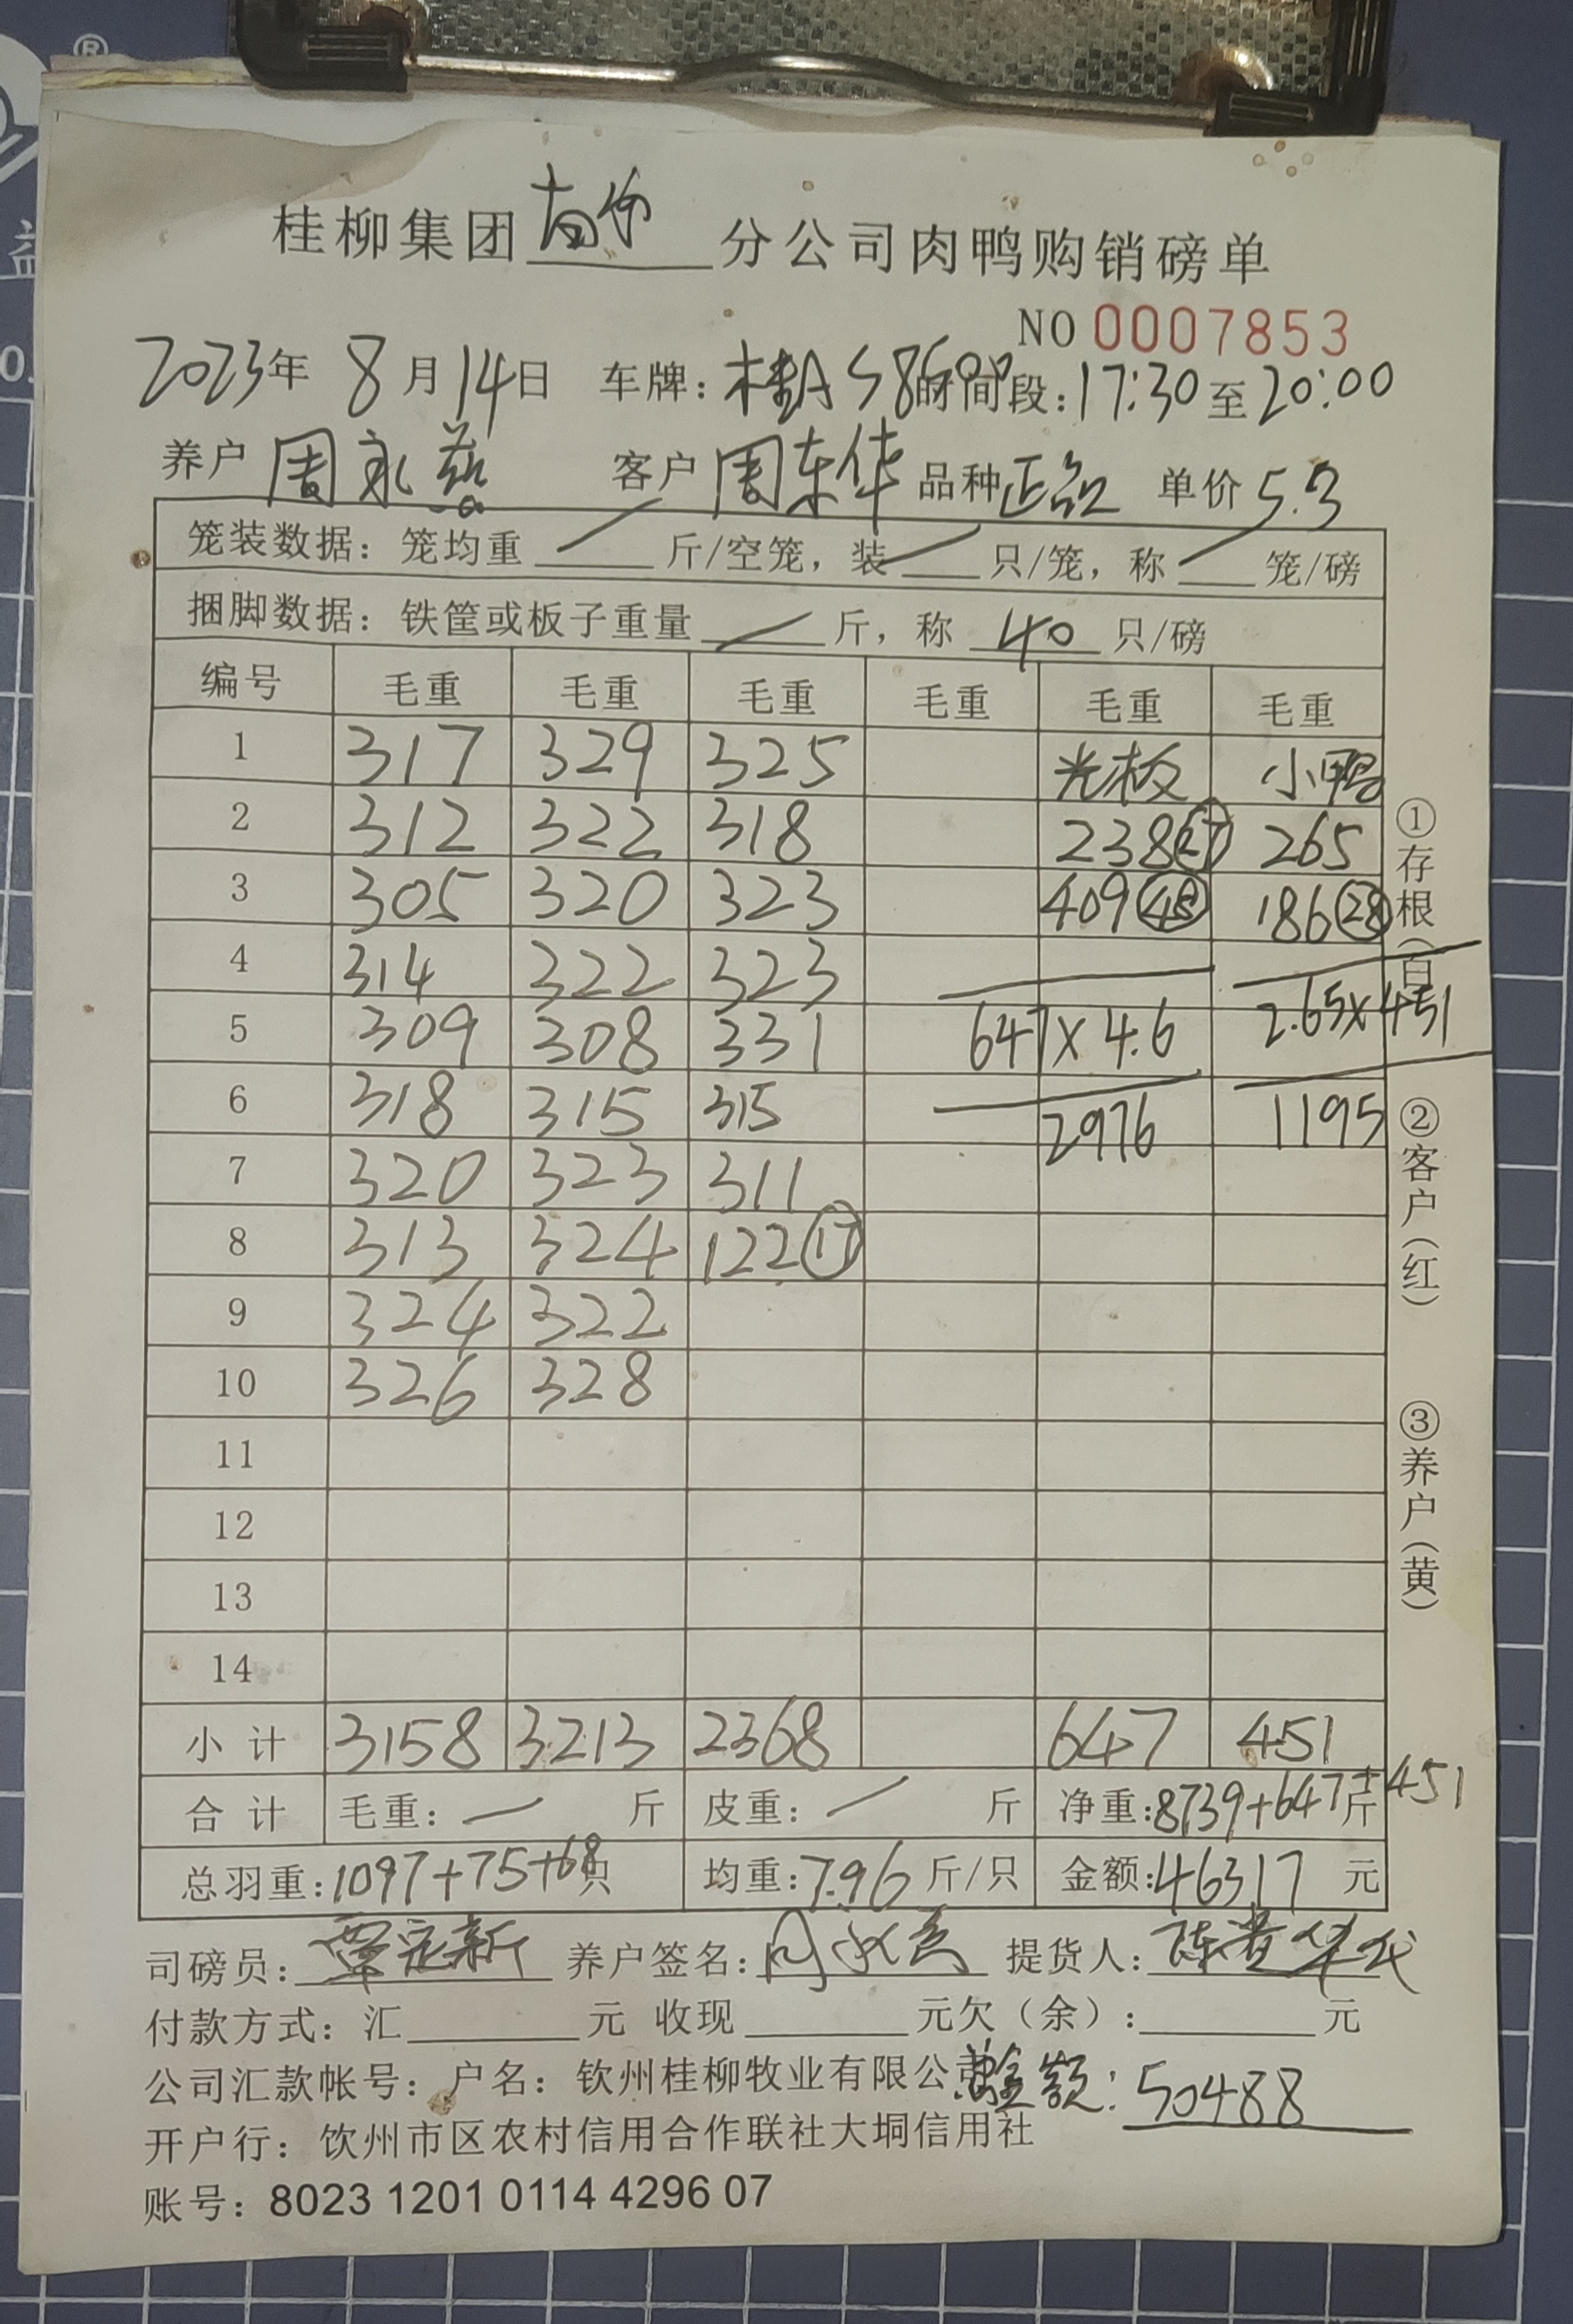 桂柳集团 分公司肉鸭购销磅单
NO 0007853
2023年 8月14日 车牌：桂A S8600 时间段：17:30至20:00
养户 周永 客户 周东华 品种 正品 单价 5.3
笼装数据：笼均重 / 斤/空笼，装 / 只/笼，称 / 笼/磅
捆脚数据：铁筐或板子重量 / 斤，称 40 只/磅
编号 毛重 毛重 毛重 毛重 毛重 毛重
1 317 329 325 光板 小鸭
2 312 322 318 238 (27) 265
3 305 320 323 409 (48) 186 (28)
4 314 322 323
5 309 308 331 647×4.6 2.65×451
6 318 315 315 2976 1195
7 320 323 311
8 313 324 122 (17)
9 324 322
10 326 328
11
12
13
14
小计 3158 3213 2368 647 451
合计 毛重：/ 斤 皮重：/ 斤 净重：8739+647+451 斤
总羽重：1097+75+68 只 均重：7.96 斤/只 金额：46317 元
司磅员：覃定新 养户签名： 提货人：陈贵华代
付款方式：汇 元 收现 元欠（余）： 元
公司汇款帐号：户名：钦州桂柳牧业有限公司 总金额：50488
开户行：饮州市区农村信用合作联社大垌信用社
账号：8023 1201 0114 4296 07
①存根（白）
②客户（红）
③养户（黄）
®
益